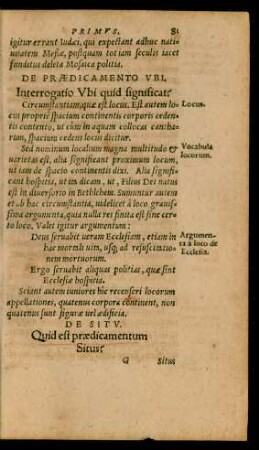 PRIMVS. 81
igitur errant Iudæi, qui expectant adhuc nati-
uitatem Meßiæ, postquam tot iam seculis iacet
funditus deleta Mosaica politia.
DE PRÆDICAMENTO VBI.
Interrogatio Vbi quid significat?
Circumstantiam, quæ est locus. Est autem lo-
Locus.
cus proprie spacium continentis corporis ceden-
tis contento, ut cùm in aquam collocas cantha-
rum, spacium cedens locus dicitur.
Sed nominum localium magna multitudo &
Vocabula
uarietas est, alia significant proximum locum,
locorum.
ut iam de spacio continentis dixi. Alia signifi-
cant hospitia, ut im dicam, ut, Filius Dei natus
est in diuersorio in Bethlehem. Sumuntur autem
et ab hac circumstantia, uidelicet à loco grauis-
sima argumenta, quia nulla res finita est sine cer-
to loco, Valet igitur argumentum:
Deus seruabit ueram Ecclesiam, etiam in
Argumen-
hac mortali uita, usq; ad resuscitatio-
ta à loco de
nem mortuorum.
Ecclesia.
Ergo seruabit aliquas politias, quæ sint
Ecclesiæ hospitia.
Sciant autem iuniores hîc recenseri locorum
appellationes, quatenus corpora continent, non
quatenus sunt figuræ uel ædificia.
DE SITV.
Quid est prædicamentum
Situs?
G Situs